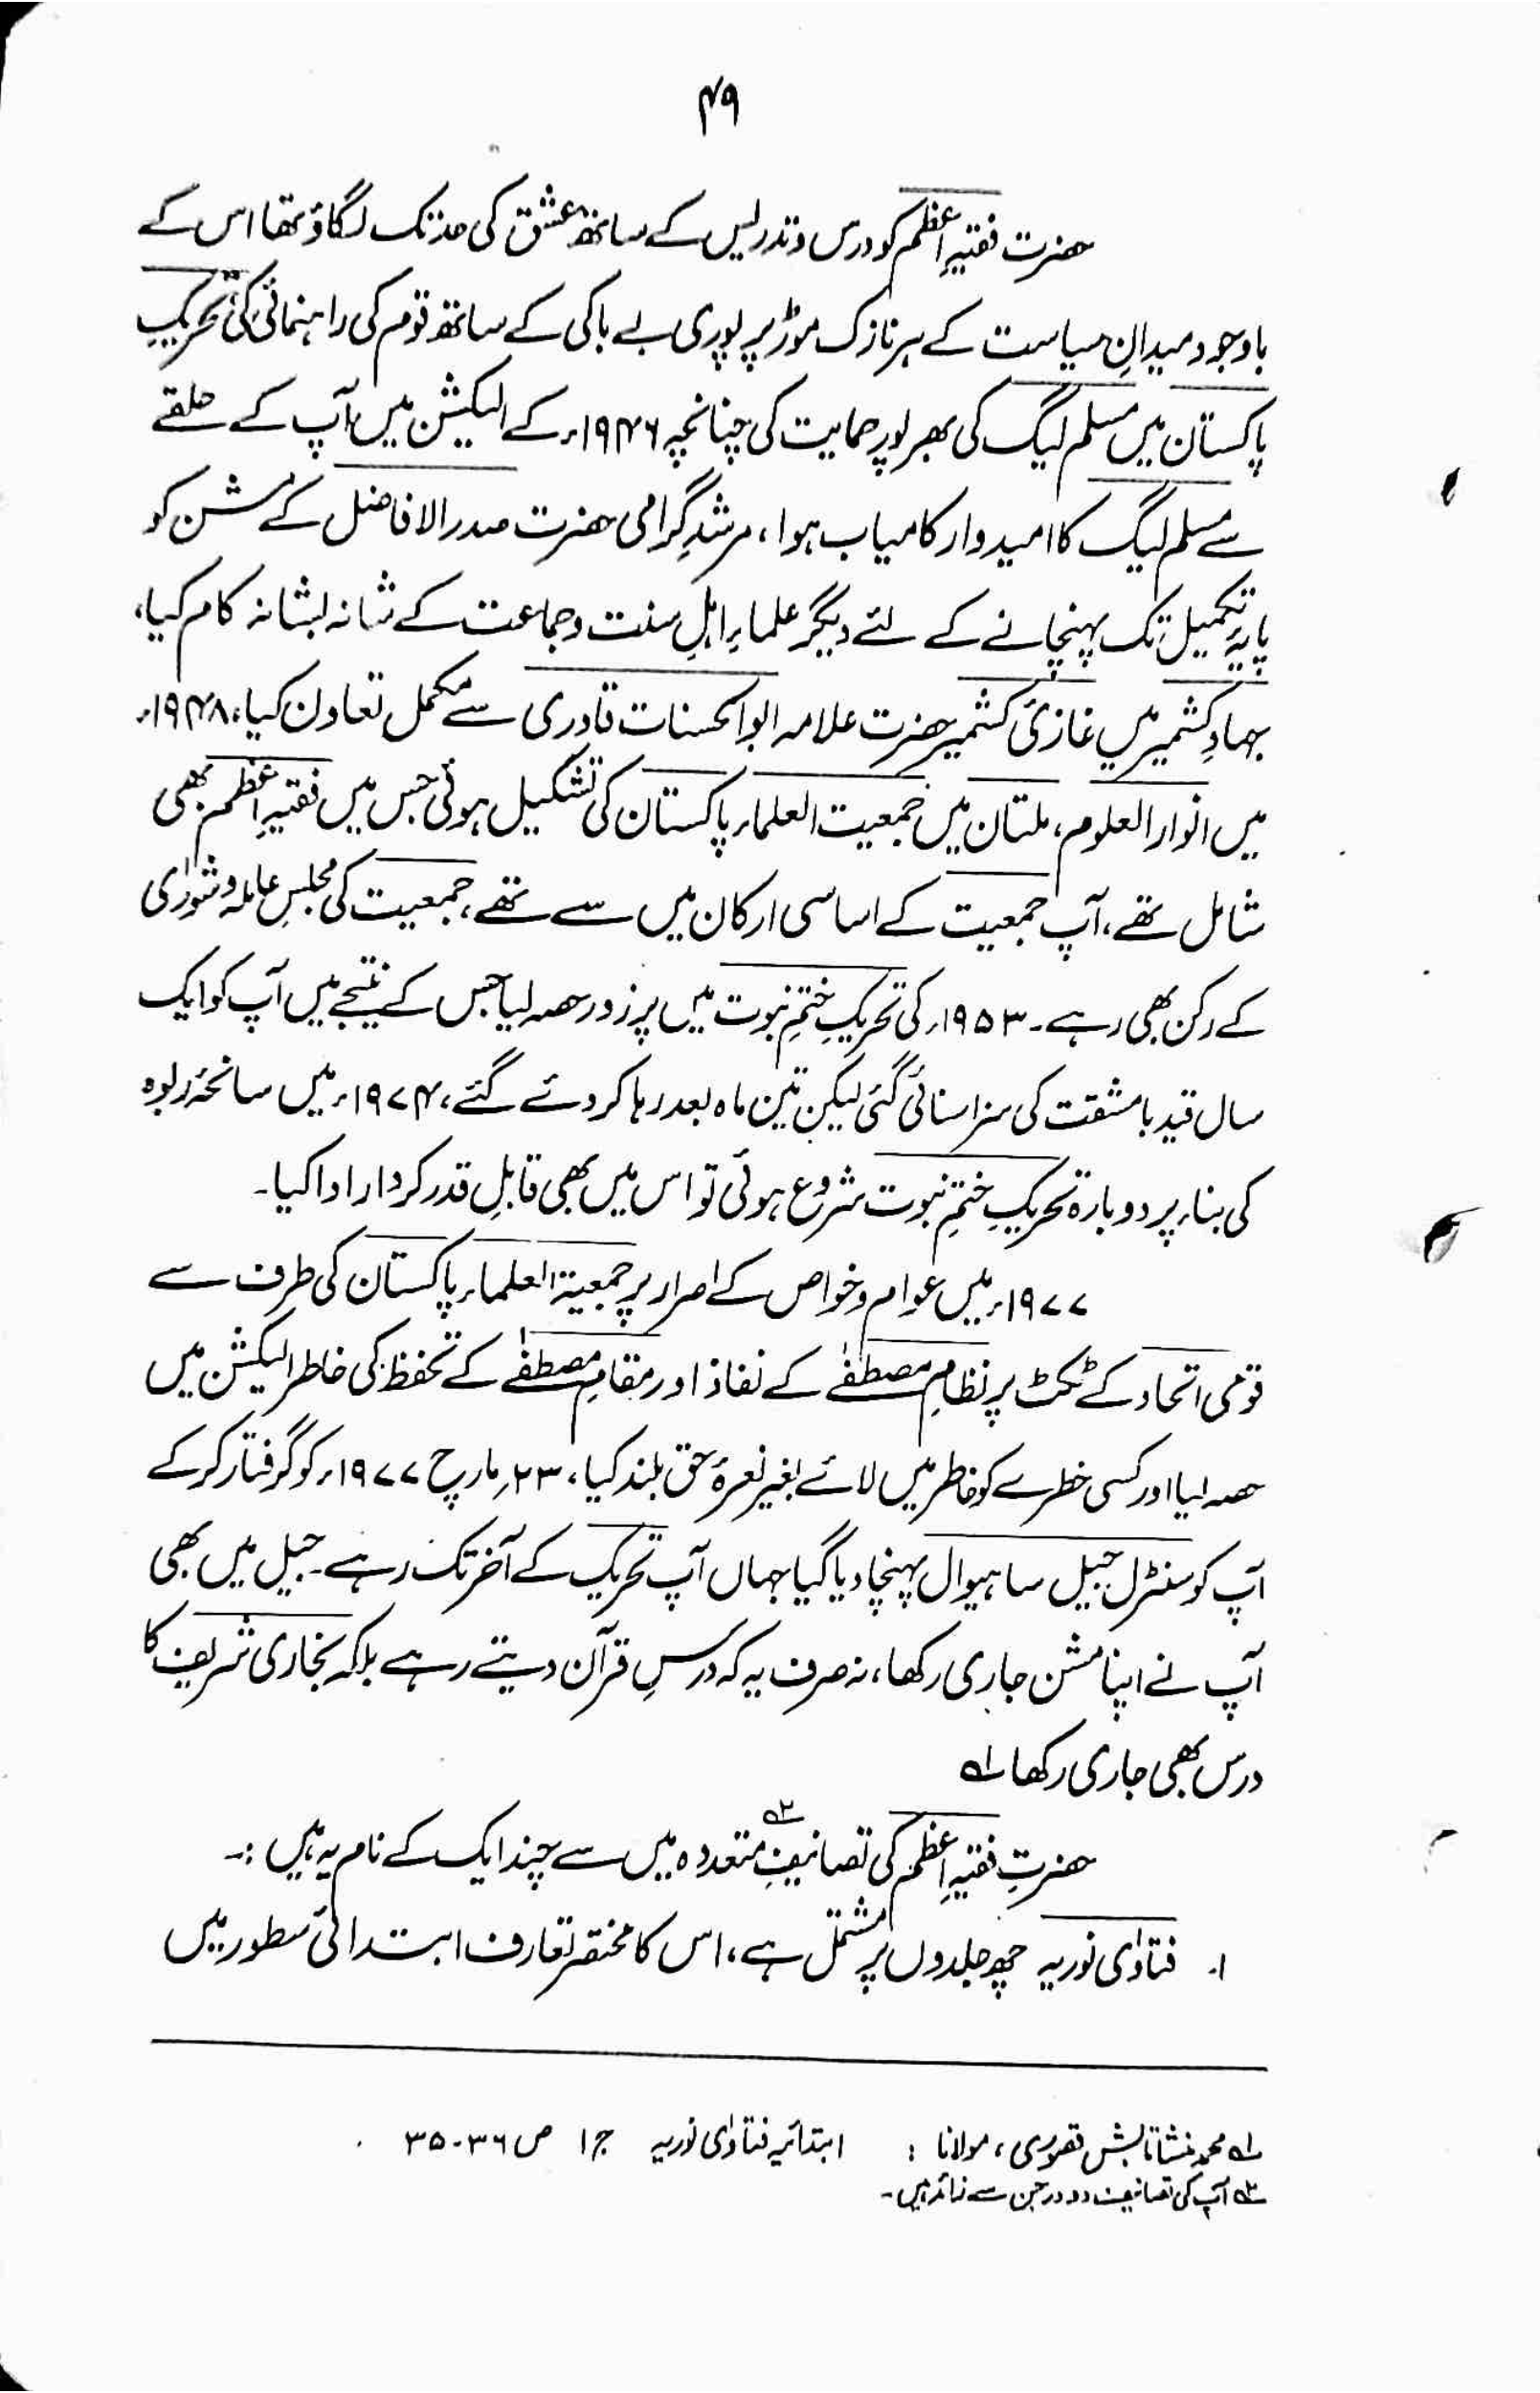 ۴۹
حضرت فقیہِ اعظم کو درس و تدریس کے ساتھ عشق کی حد تک لگاؤ تھا اس کے
باوجود میدانِ سیاست کے ہر نازک موڑ پر پوری بے باکی کے ساتھ قوم کی راہنمائی کی تحریکِ
پاکستان میں مسلم لیگ کی بھرپور حمایت کی چنانچہ ۱۹۴۶ء کے الیکشن میں آپ کے حلقے
سے مسلم لیگ کا امیدوار کامیاب ہوا، مرشدِ گرامی حضرت صدر الافاضل کے مشن کو
پایۂ تکمیل تک پہنچانے کے لئے دیگر علماءِ اہلِ سنت وجماعت کے شانہ بشانہ کام کیا،
جہادِ کشمیر میں غازئ کشمیر حضرت علامہ ابوالحسنات قادری سے مکمل تعاون کیا، ۱۹۴۸ء
میں انوار العلوم، ملتان میں جمعیت العلماء پاکستان کی تشکیل ہوئی جس میں فقیہِ اعظم بھی
شامل تھے، آپ جمعیت کے اساسی ارکان میں سے تھے، جمعیت کی مجلسِ عاملہ و شورٰی
کے رکن بھی رہے۔ ۱۹۵۳ء کی تحریکِ ختمِ نبوت میں پرزور حصہ لیا جس کے نتیجے میں آپ کو ایک
سال قید بامشقت کی سزا سنائی گئی لیکن تین ماہ بعد رہا کر دئے گئے، ۱۹۷۴ء میں سانحۂ ربوہ
کی بناء پر دوبارہ تحریکِ ختمِ نبوت شروع ہوئی تو اس میں بھی قابلِ قدر کردار ادا کیا۔
۱۹۷۷ء میں عوام و خواص کے اصرار پر جمعیۃ العلماء پاکستان کی طرف سے
قومی اتحاد کے ٹکٹ پر نظامِ مصطفٰے کے نفاذ اور مقامِ مصطفٰے کے تحفظ کی خاطر الیکشن میں
حصہ لیا اور کسی خطرے کو خاطر میں لائے بغیر نعرۂ حق بلند کیا، ۲۳ مارچ ۱۹۷۷ء کو گرفتار کر کے
آپ کو سنٹرل جیل ساہیوال پہنچا دیا گیا جہاں آپ تحریک کے آخر تک رہے۔ جیل میں بھی
آپ نے اپنا مشن جاری رکھا، نہ صرف یہ کہ درسِ قرآن دیتے رہے بلکہ بخاری شریف کا
درس بھی جاری رکھا ؎۱
حضرتِ فقیہِ اعظم کی تصانیفِ ؎۲ متعددہ میں سے چند ایک کے نام یہ ہیں :۔
۱۔ فتاوٰی نوریہ چھ جلدوں پر مشتمل ہے، اس کا مختصر تعارف ابتدائی سطور میں
؎۱ محمد منشا تابش قصوری، مولانا : ابتدائیہ فتاوٰی نوریہ ج ۱ ص ۳۶-۳۵
؎۲ آپ کی تصانیف دو درجن سے زائد ہیں۔